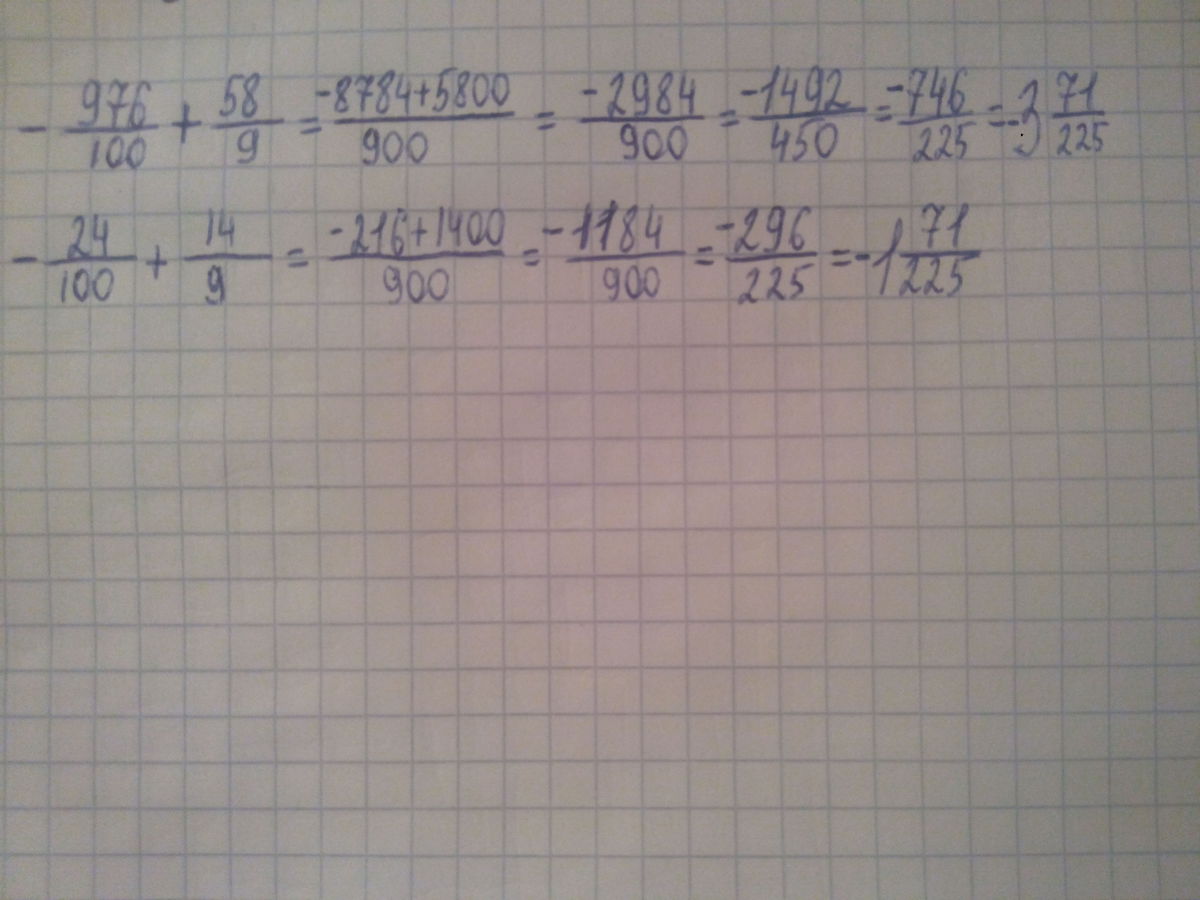 - 976/100 + 58/9 = -8784+5800/900 = -2984/900 = -1492/450 = -746/225 = -3 71/225
- 24/100 + 14/9 = -216+1400/900 = -1184/900 = -296/225 = -1 71/225